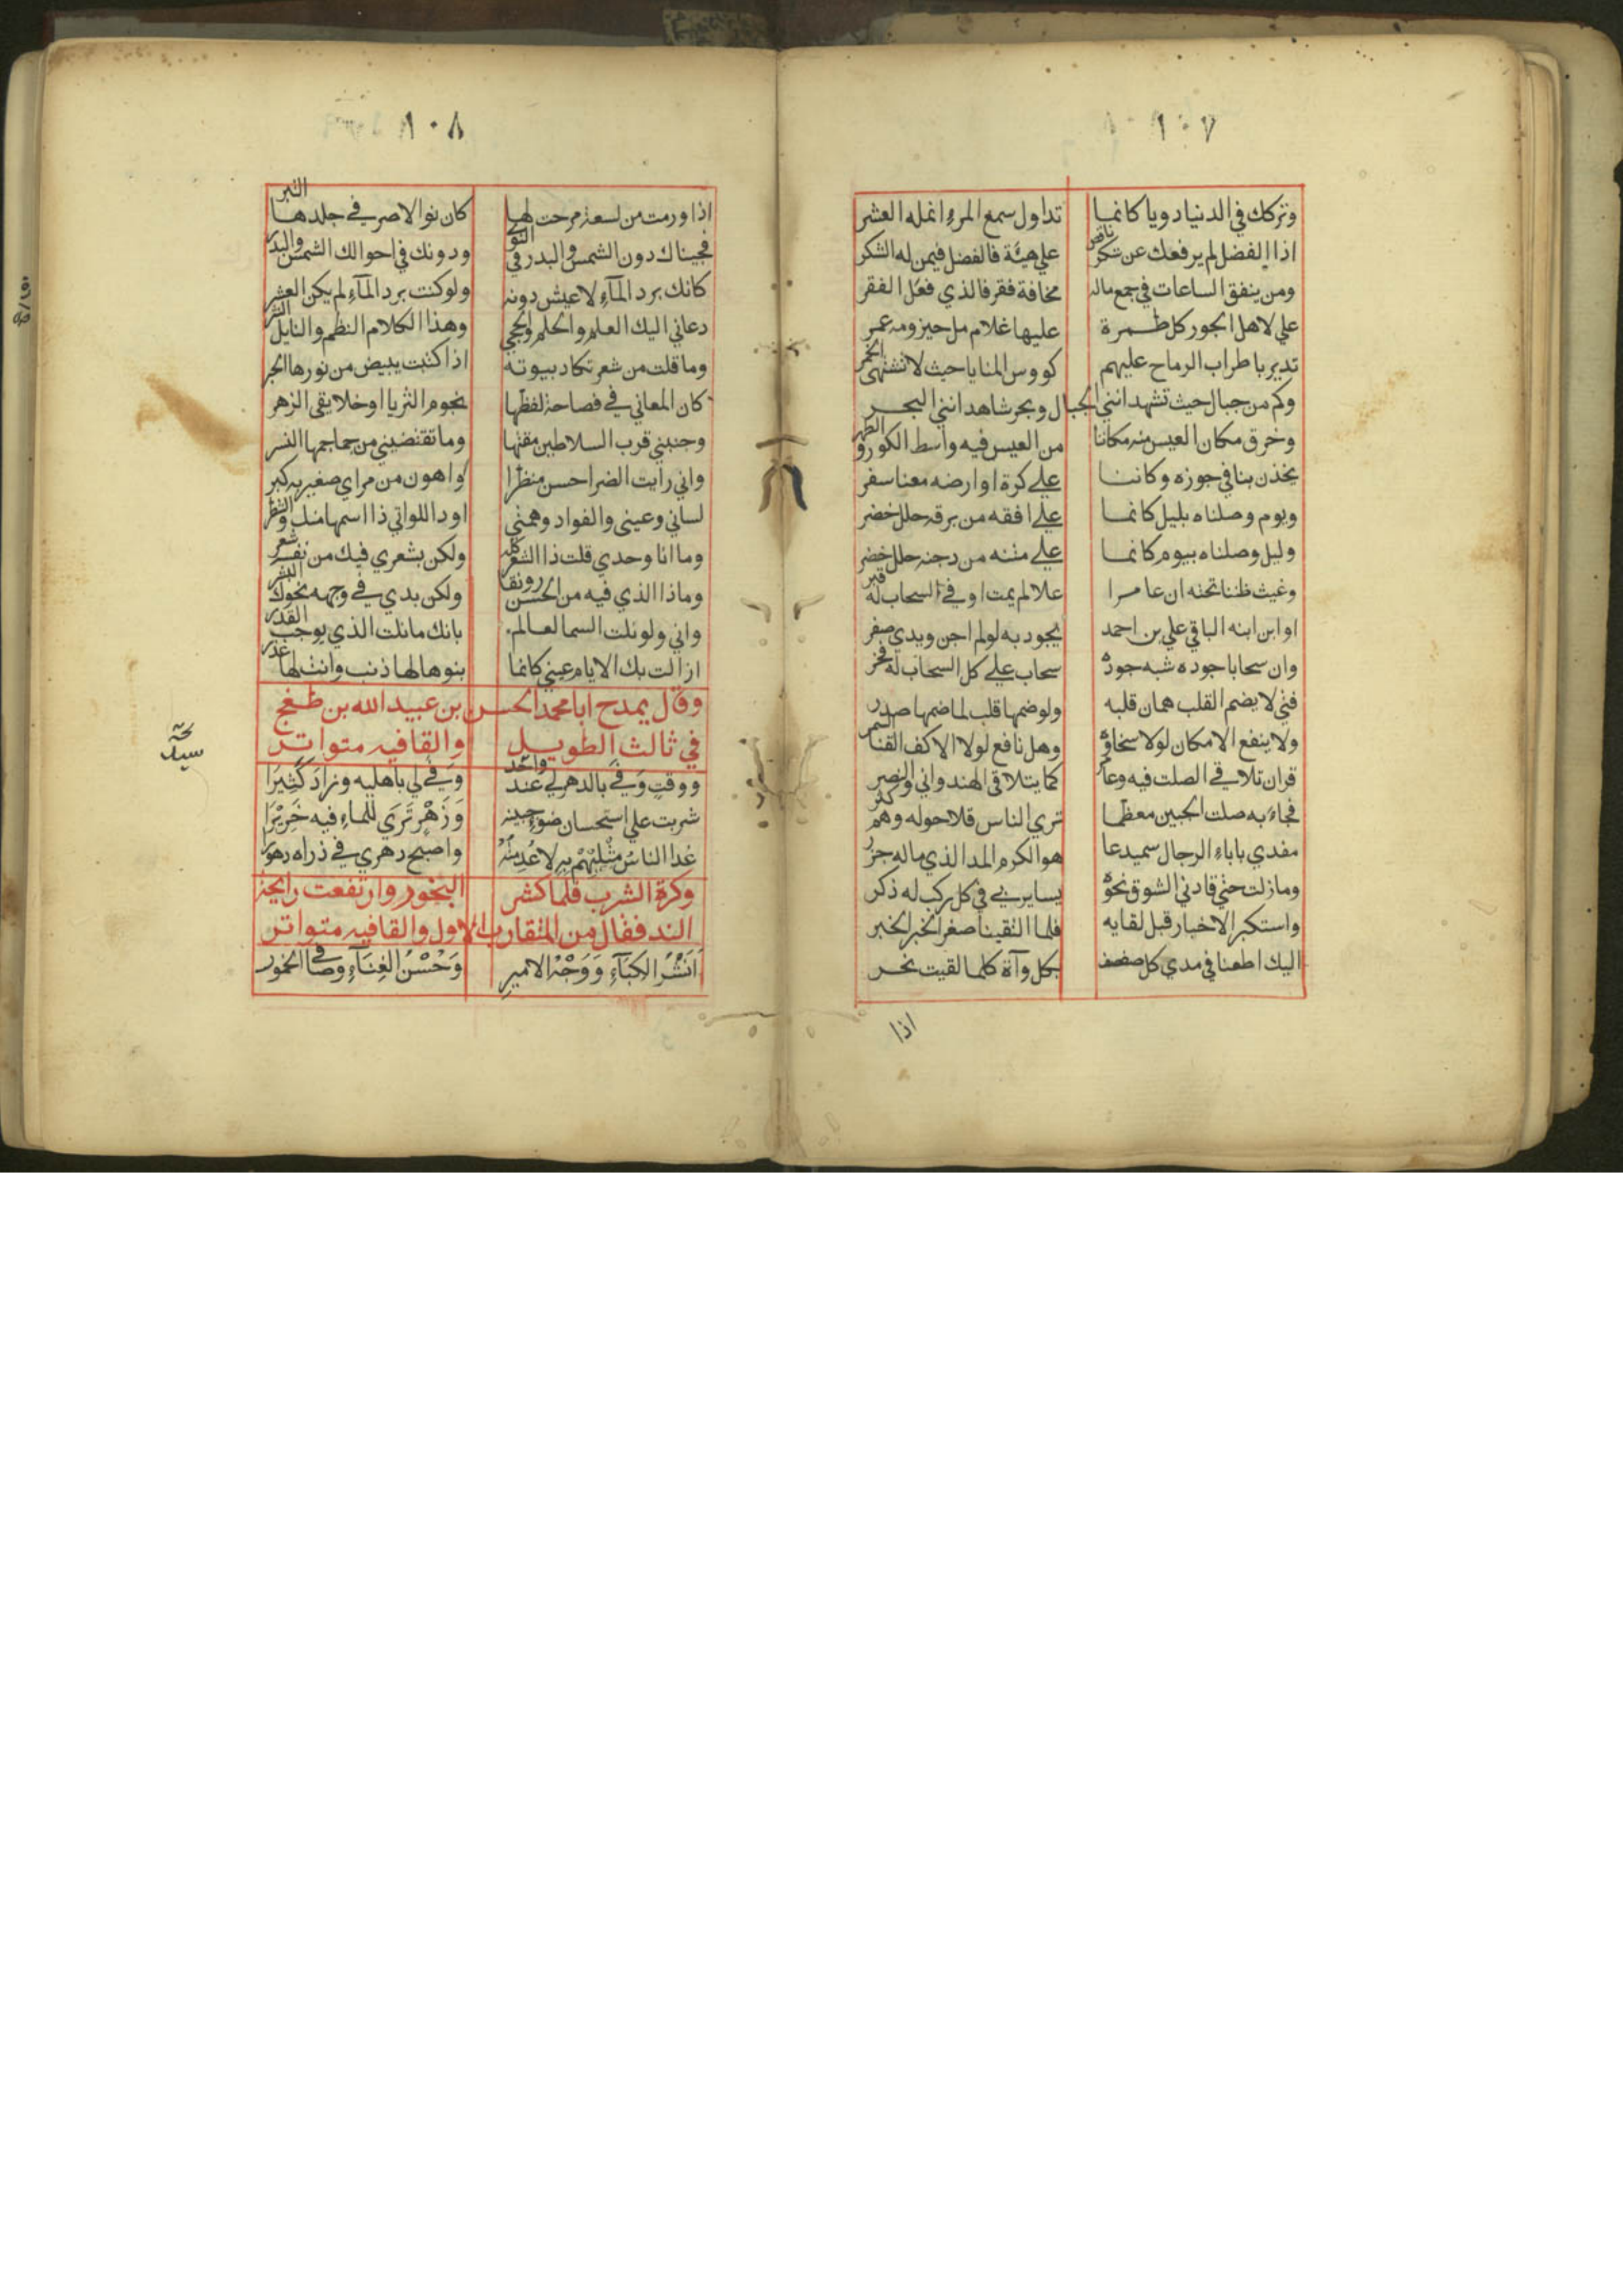 ١٠٧
وتركك في الدنيا دويا كانما تداول سمع المرء انمله العشر
اذا الفضل لم يرفعك عن شكر ناقص علي هبّة فالفضل فيمن له الشكر
ومن ينفق الساعات في جمع ماله مخافة فقر فالذي فعل الفقر
علي لاهل الجور كل طمرة عليها غلام مل حيزومه غمر
تدير باطراب الرماح عليهم كووس المنايا حيث لا تشتهى الخمر
وكم من جبال حيث تشهد انني الجبال وبحر شاهد انني البحر
وخرق مكان العيس منه مكاننا من العيس فيه واسط الكور والظهر
يخذن بنا في جوزه وكاننا علي كرة او ارضه معنا سفر
ويوم وصلناه بليل كانما علي افقه من برقه حلل خضر
وليل وصلناه بيوم كانما علي متنه من دجنه حلل خضر
وغيث ظننا تحته ان عامرا علا لم يمت او في السحاب له قبر
او ابن ابنه الباقي علي بن احمد يجود به لو لم اجن ويدي صفر
وان سحابا جوده شبه جوده سحاب علي كل السحاب له فخر
فتي لا يضم القلب همات قلبه ولو ضمها قلب لما ضمها صدر
ولا ينفع الامكان لولا سخاوه وهل نافع لولا الاكف القنا السمر
قران تلاقي الصلت فيه وعامر كما يتلاقى الهندواني والنصر
فجاء به صلت الجبين معظما تري الناس قلا حوله وهم كثر
مفدي باباء الرجال سميدعا هو الكرم المد الذي ماله جزر
ومازلت حتي قادني الشوق نحوه يسايرني في كل ركب له ذكر
واستكبر الاخبار قبل لقايه فلما التقينا صغر الخبر الخبر
اليك اطعنا في مدي كل صفصف بكل وآة كلما لقيت نحر
اذا
١٠٨
اذا ورمت من لسعة مرحت لها كان نوالا صر في جلدها النبر
فجيناك دون الشمس والبدر في النوى ودونك في احوالك الشمس والبدر
كانك برد المآء لا عيش دونه ولو كنت برد المآء لم يكن العشر
دعاني اليك العلم والحلم والحجي وهذا الكلام النظم والنايل النثر
وما قلت من شعر تكاد بيوته اذا كتبت يبيض من نورها الحبر
كان المعاني في فصاحة لفظها نجوم الثريا او خلايقى الزهر
وجنبني قرب السلاطين مقتها وما تقتضيني من جماجمها النسر
واني رايت الضر احسن منظرا واهون من مراي صغير به كبر
لساني وعيني والفواد وهمتي اود اللواتي ذا اسمها منك والشطر
وما انا وحدي قلت ذا الشعر كله ولكن بشعري فيك من نفسه شعر
وماذا الذي فيه من الحسن رونقا ولكن بدي في وجهه نحوك البشر
واني ولو نلت السما لعالم بانك مانلت الذي يوجب القدر
ازالت بك الايام عيني كانما بنوها لها ذنب وانت لها عذر
وقال يمدح ابا محمد الحسن بن عبيد الله بن طغج
في ثالث الطويل والقافيه متواتر
ووقتٍ وَفي بالدهر لي عند واحد وَفي لي باهليه وزادَ كَثِيرَا
شربت علي استحسان ضوء جبينه وَزَهْرٍ تَرَي للماءِ فيه خَرِيْرَا
غدا الناسُ مثْلِيْهُمْ بهِ لا عُدِمتُهُ واصبح دهري في ذراه دهورا
وكره الشرب فلما كثر البخور وارتفعت رايحة
الند فقال من المتقارب الاول والقافيه متواتر
اَنَشْرُ الكِبَآءِ وَوَجْهُ الاميرِ وَحُسْنُ الغِنَآءِ وصافى الخمور